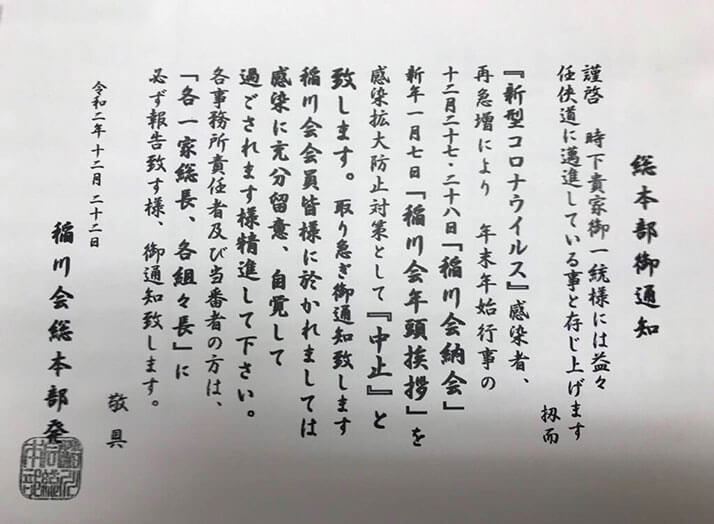 総本部御通知
謹啓　時下貴家御一統様には益々
任侠道に邁進している事と存じ上げます
扨而
『新型コロナウイルス』感染者、
再急増により　年末年始行事の
十二月二十七・二十八日「稲川会納会」
新年一月七日「稲川会年頭挨拶」を
感染拡大防止対策として『中止』と
致します。取り急ぎ御通知致します
稲川会会員皆様に於かれましては
感染に充分留意、自覚して
過ごされます様精進して下さい。
各事務所責任者及び当番者の方は、
「各一家総長、各組々長」に
必ず報告致す様、御通知致します。
敬具
令和二年十二月二十二日
稲川会総本部発